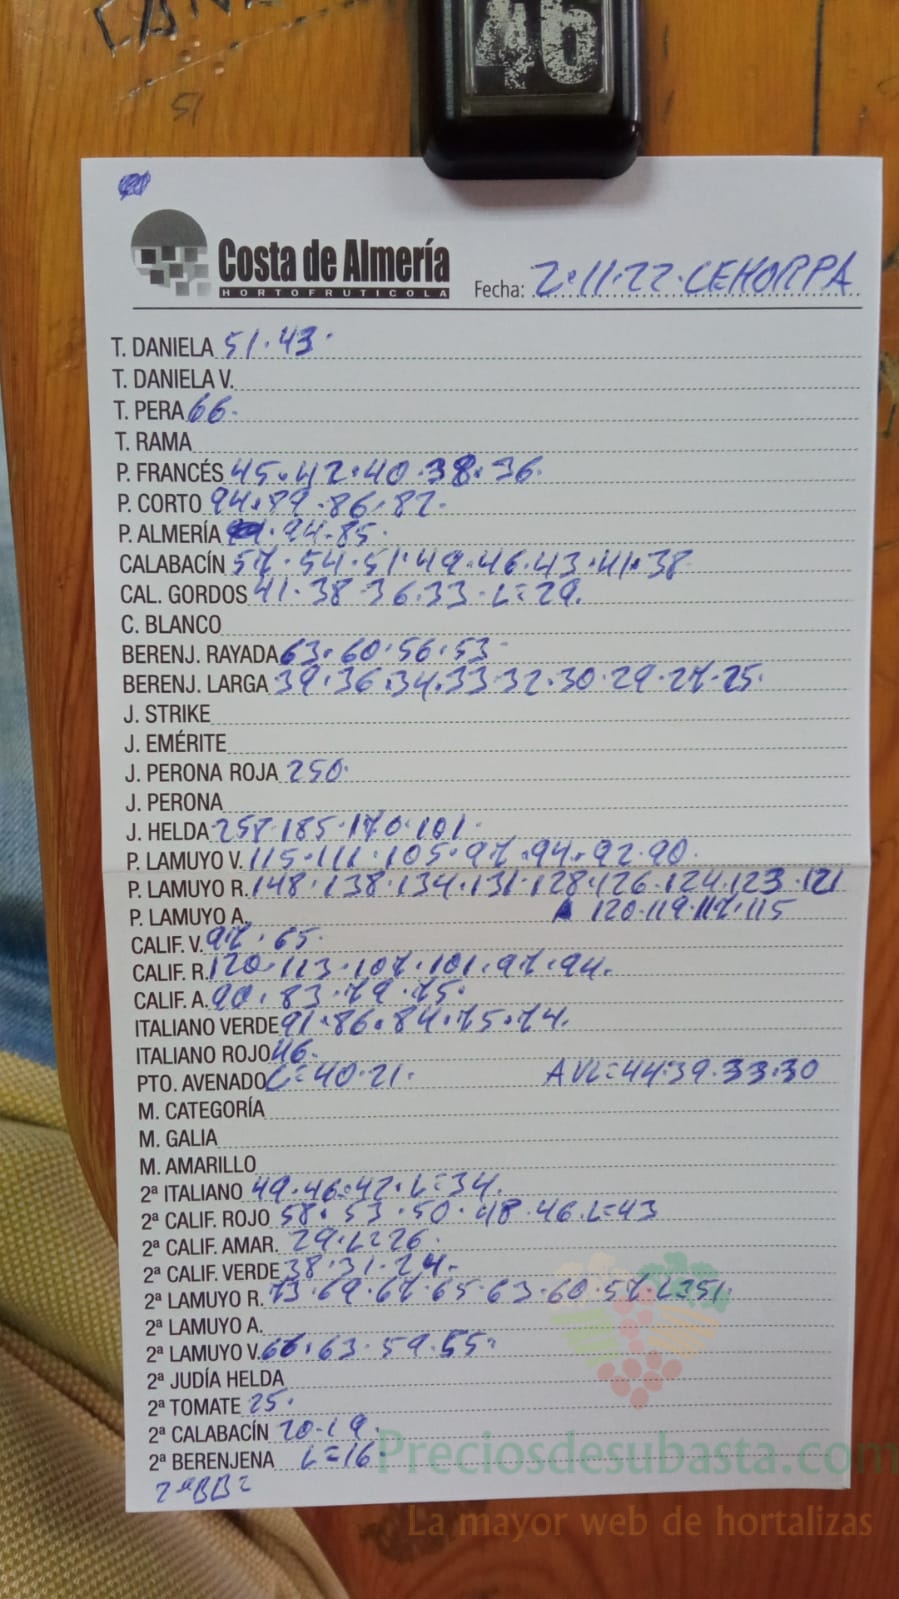 46
51
Costa de Almería
HORTOFRUTICOLA
Fecha: 2·11·22·CEHORPA
T. DANIELA 51·43·
T. DANIELA V.
T. PERA 66·
T. RAMA
P. FRANCÉS 45·42·40·38·36·
P. CORTO 94·89·86·82·
P. ALMERÍA ·94·85·
CALABACÍN 57·54·51·49·46·43·41·38
CAL. GORDOS 41·38·36·33·L=29.
C. BLANCO
BERENJ. RAYADA 63·60·56·53·
BERENJ. LARGA 39·36·34·33·32·30·29·27·25·
J. STRIKE
J. EMÉRITE
J. PERONA ROJA 250·
J. PERONA
J. HELDA 257·185·170·101·
P. LAMUYO V. 115·111·105·97·94·92·90·
P. LAMUYO R. 148·138·134·131·128·126·124·123·121
P. LAMUYO A. 120·119·117·115
CALIF. V. 97·65·
CALIF. R. 120·113·107·101·97·94·
CALIF. A. 90·83·79·75·
ITALIANO VERDE 91·86·84·75·74·
ITALIANO ROJO 46·
PTO. AVENADO L=40·21· AVL=44·39·33·30
M. CATEGORÍA
M. GALIA
M. AMARILLO
2ª ITALIANO 49·46·42·L=34·
2ª CALIF. ROJO 58·53·50·48·46·L=43
2ª CALIF. AMAR. 29·L=26·
2ª CALIF. VERDE 38·31·24·
2ª LAMUYO R. 73·69·67·65·63·60·57·L=51·
2ª LAMUYO A.
2ª LAMUYO V. 67·63·59·55·
2ª JUDÍA HELDA
2ª TOMATE 25·
2ª CALABACÍN 20·19·
2ª BERENJENA L=16·
2ªBB=
Preciosdesubasta.com
La mayor web de hortalizas